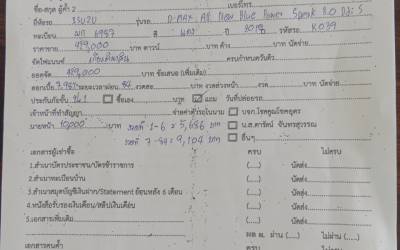 ชื่อ-สกุล ผู้ค้ำ 2 เบอร์โทร
ยี่ห้อรถ ISUZU รุ่นรถ D-MAX All New Blue Power Spark 3.0 Ddi S
ทะเบียน 6987 สี แดง ปี 2018 รหัสรถ K039
ราคาขาย 419,000 บาท ดาวน์ บาท ค้างดาวน์ บาท นัดจ่าย
จัดไฟแนนซ์ กำหนดรับเงินสดวันที่
ยอดจัด 419,000 บาท ข้อเสนอ (เพิ่มเติม)
ดอกเบี้ย ระยะเวลาผ่อน 84 งวด งวดละ บาท งวดล่วงหน้า งวด/ นัดจ่าย
ประกันภัยชั้น ชั้น 1 ซื้อเอง บาท แถม วันที่ปล่อยรถ
เจ้าหน้าที่ทำสัญญา จ่ายค่าตัวรถในนาม บจก.โชคคูณโชคอุดร
นายหน้า 10,000 งวดที่ 1-6 = 5,686 บาท น.ส.ดารัตน์ จันทรสุวรรณ
งวดที่ 7-84 = 9,104 บาท อื่นๆ
เอกสารผู้เช่าซื้อ ครบ ไม่ครบ
1.สำเนาบัตรประชาชน/บัตรข้าราชการ (....) (....) นัดส่ง
2.สำเนาทะเบียนบ้าน (....) (....) นัดส่ง
3.สำเนาสมุดบัญชีเงินฝาก/Statement ย้อนหลัง 6 เดือน (....) (....) นัดส่ง
4.หนังสือรับรองเงินเดือน/สลิปเงินเดือน (....) (....) นัดส่ง
5.เอกสารเพิ่มเติม (....) (....) นัดส่ง
ผล ผ่าน (....) ไม่ผ่าน (....)
เอกสารคนค้ำ ครบ ไม่ครบ